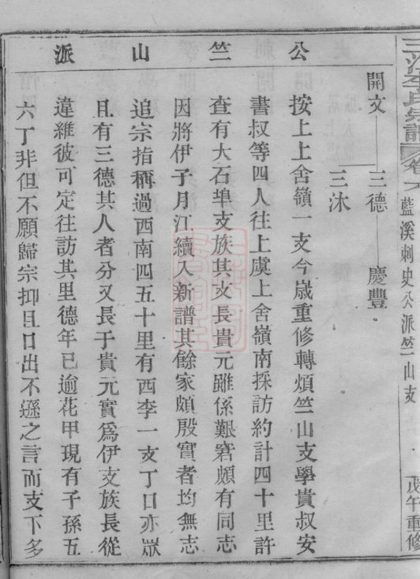 三江李氏宗譜 卷一 藍溪刺史公派竺山支 戊午重修
公竺山派
開文 三德 慶豐
三沐
按上上舍嶺 支今歲重修轉煩竺山支學貴叔安
書叔等四人往上虞上舍嶺南採訪約計四十里許
查有大石埠支族其支長貴元雖係艱窘頗有同志
因將伊子月江續入新譜其餘家頗殷實者均無志
追宗指稱過西南四五十里有西李一支丁口亦眾
且有三德其人者分又長于貴元實爲伊支族長從
違維彼可定往訪其里德年已逾花甲現有子孫五
六丁非但不願歸宗抑且口出不遜之言而支下多